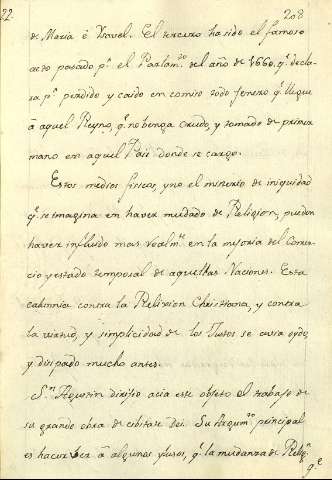 22. 208
de Maria è Ysavel. El tercero ha sido el famoso
acto pasado pr. el Parlamto. del año de 1660. qe. decla-
ra pr. perdido y caido en comiso todo genero qe. llegue
à aquel Reyno, qe. no benga crudo, y tomado de prime
mano en aquel Pais donde se cargo.
Estos medios fisicos, y no el misterio de iniquidad
qe. se imagina en haver mudado de Religion, pueden
haver influido mas realmte. en la mejoria del Comer-
cio y estado temporal de aquellas Naciones. Esta
calumnia contra la Relixion Christiana, y contra
la virtud, y simplicidad de los Justos se avia oydo,
y disipado mucho antes.
Sn. Agustin dirijio acia este objeto el trabajo de
su grande obra de cibitate Dei. Su Argumto. principal
es hacer ver à algunos ylusos, qe. la mudanza de Relign.
qe.